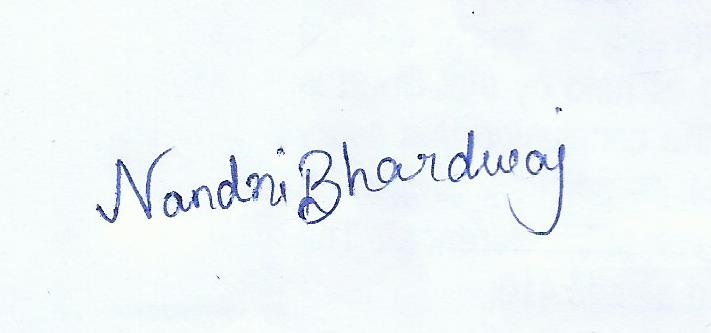 Nandni Bhardwaj